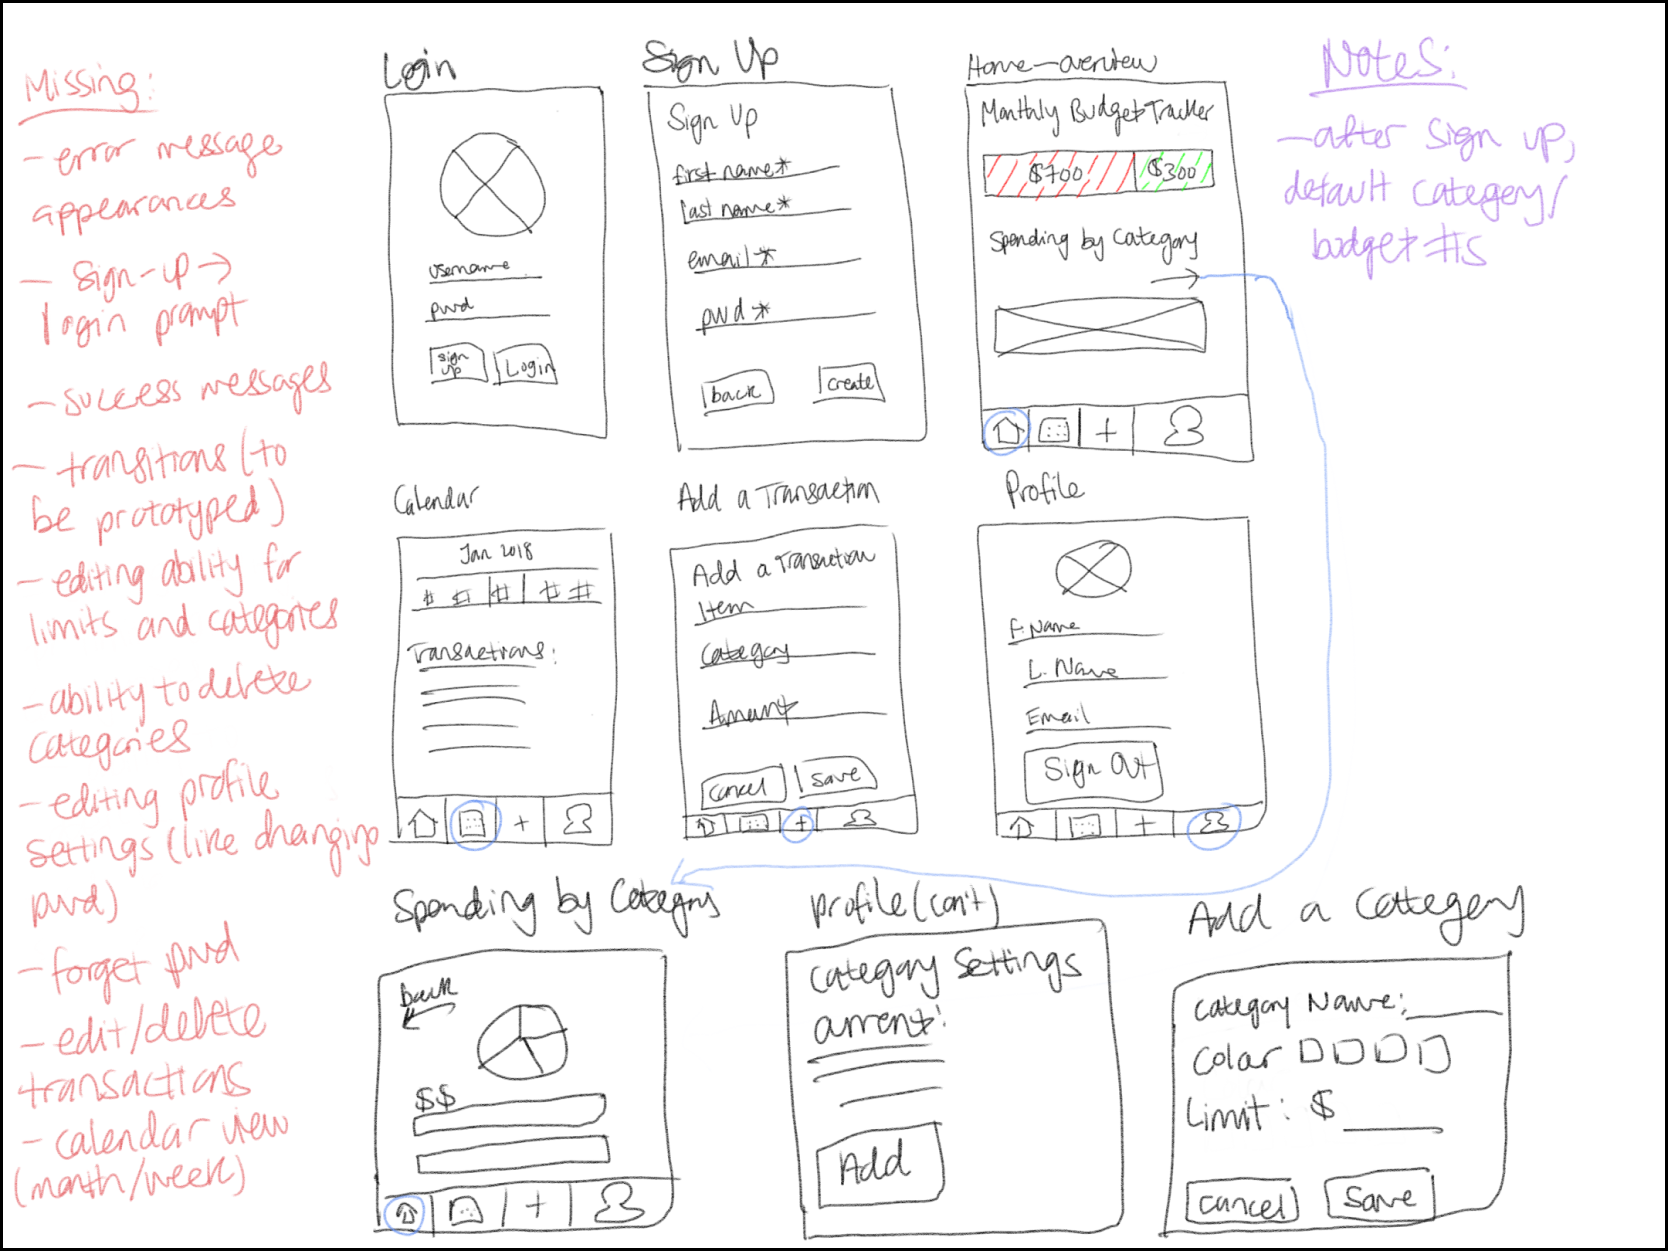 Missing:
- error message
appearances
- sign-up →
login prompt
- success messages
- transitions (to
be prototyped)
- editing ability for
limits and categories
- ability to delete
categories
- editing profile
settings (like changing
pwd)
- forget pwd
- edit/delete
transactions
- calendar view
(month/week)
Login
username
pwd
sign
up
Login
Sign Up
Sign Up
first name*
last name*
email*
pwd*
back
create
Home-overview
Monthly Budget Tracker
$700
$300
Spending by Category
→
Notes:
- after sign up,
default category/
budget #s
Calendar
Jan 2018
# # # # #
Transactions:
+
Add a Transaction
Add a Transaction
Item
Category
Amount
Cancel
Save
+
Profile
F. Name
L. Name
Email
Sign Out
+
Spending by Category
back
←
$$
+
profile (con't)
Category Settings
current:
Add
Add a Category
Category Name:
Color
Limit: $
Cancel
Save